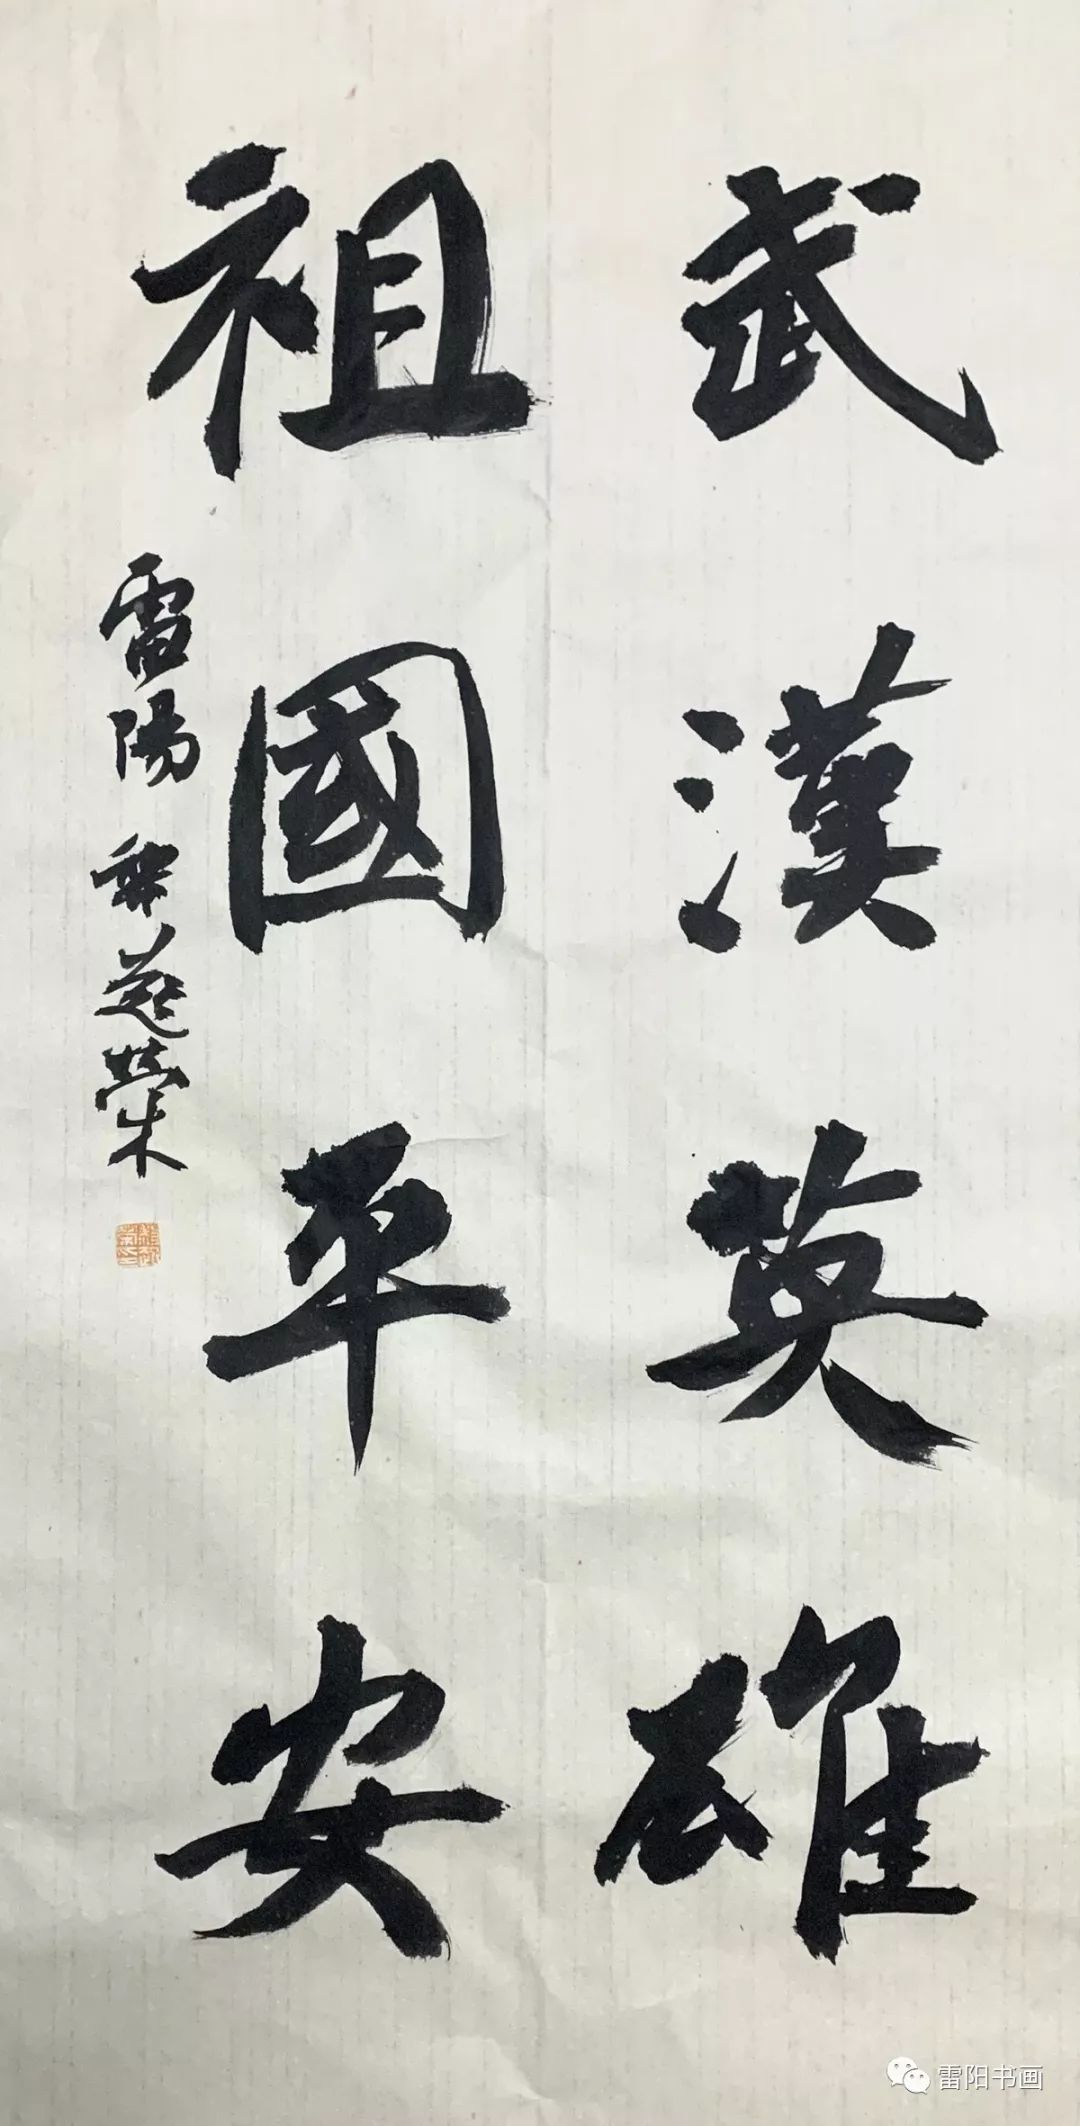 武漢英雄
祖國平安
雷陽
榮
雷阳书画